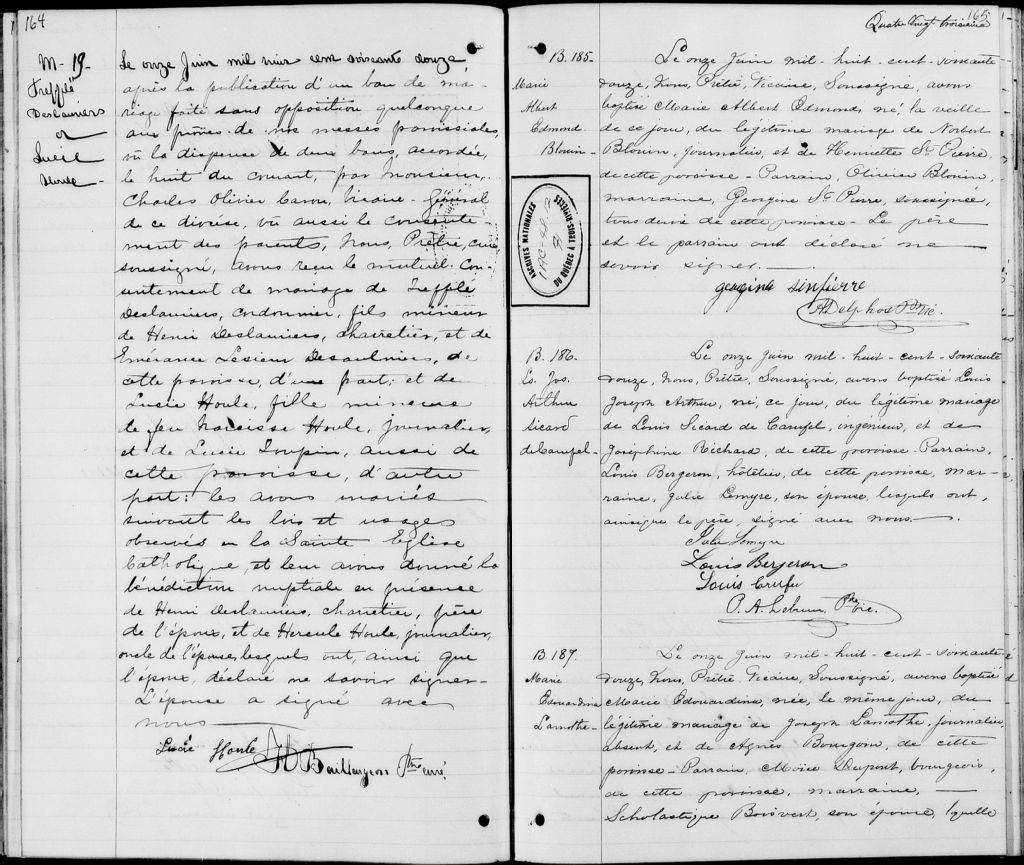 164
M - 19 -
Trefflé
Deslauriers
et
Lucie
Houle
Le onze Juin mil huit cent soixante douze
après la publication d'un ban de ma-
riage faite sans opposition quelconque
aux prônes de nos messes paroissiales,
vû la dispense de deux bans, accordée,
le huit du courant, par Monsieur,
Charles Olivier Caron, vicaire - Général
de ce diocèse, vû aussi le consente-
ment des parents, Nous, Prêtre, curé
soussigné, avons reçu le mutuel con-
sentement de mariage de Trefflé
Deslauriers, cordonnier, fils mineur
de Henri Deslauriers, charretier, et de
Emérance Lesieur Desaulniers, de
cette paroisse, d'une part; et de
Lucie Houle, fille mineure
de feu Narcisse Houle, journalier,
et de Lucie Toupin, aussi de
cette paroisse, d'autre
part: les avons mariés
suivant les lois et usages
observés en la Sainte Eglise
Catholique, et leur avons donné la
bénédiction nuptiale en présence
de Henri Deslauriers, charretier, père
de l'époux, et de Hercule Houle, journalier,
oncle de l'épouse, lesquels ont, ainsi que
l'époux, déclaré ne savoir signer -
L'épouse a signé avec
nous
Lucie Houle
Baillargeon Ptre curé
165
Quatre Vingt troisième
B. 185 -
Marie
Albert
Edmond
Blouin -
Le onze Juin mil - huit - cent - soixante
douze, Nous, Prêtre, Vicaire, Soussigné, avons
baptisé Marie Albert Edmond, né, la veille
de ce jour, du légitime mariage de Norbert
Blouin, journalier, et de Henriette St Pierre,
de cette paroisse - Parrain, Olivier Blouin,
marraine, Georgine St Pierre, soussignée,
tous deux de cette paroisse - Le père
et le parrain ont déclaré ne
savoir signer.
georgine senpierre
Delphos Ptre Vic.
ARCHIVES NATIONALES
DU QUÉBEC À TROIS-RIVIÈRES
B. 186.
Ls. Jos.
Arthur
Sicard
de Carufel -
Le onze Juin mil - huit - cent - soixante
douze, Nous, Prêtre, Soussigné, avons baptisé Louis
Joseph Arthur, né, ce jour, du légitime mariage
de Louis Sicard de Carufel, ingénieur, et de
Joséphine Richard, de cette paroisse. Parrain,
Louis Bergeron, hôtelier, de cette paroisse, mar-
raine, Julie Lemyre, son épouse, lesquels ont,
ainsi que le père, signé avec nous.
Julie Lemyre
Louis Bergeron
Louis Crufel
P. A. Lebrun Ptre Vic.
B. 187.
Marie
Edouardina
Lamothe -
Le onze Juin mil - huit - cent - soixante
douze, Nous, Prêtre Vicaire, Soussigné, avons baptisé
Marie Edouardina, née, le même jour, du
légitime mariage de Joseph Lamothe, journalier,
absent, et de Agnès Bourgoin, de cette
paroisse - Parrain, Moïse Dupont, bourgeois,
de cette paroisse, marraine,
Scholastique Boisvert, son épouse, laquelle